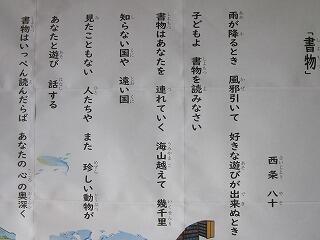 「書物」
西条 八十
雨が降るとき 風邪引いて 好きな遊びが出来ぬとき
子どもよ 書物を読みなさい
書物はあなたを 連れていく 海山越えて 幾千里
知らない国や 遠い国
見たこともない 人たちや また 珍しい動物が
あなたと遊び 話する
書物はいっぺん読んだらば あなたの心の奥深く